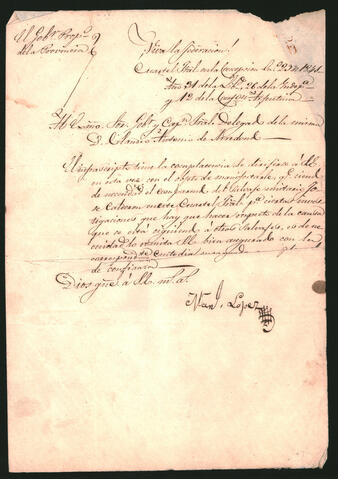 El Gobr. Propº.
de la Provincia
Viva la federacion!
Cuartel Gral en la Concepcion En.º 22 de 1841
Año 31 de la Lib. 26 de la Indepª. y
12 de la Confon. Argentina
Al Exmo. Sor. Gobr. y Capn. Gral Delegado de la misma
D.
El infrascripto tiene la complacencia de dirijirse á V.E.
en esta vez con el objeto de manifestarle, q.e siendo
de necesidad el comparendo del Salvaje unitario Jo-
se en este Cuartel Gral pª. ciertas inves-
tigaciones que hay que hacer respecto de la causa
que se está siguiendo á otros Salvajes, es de ne-
cesidad lo remita V.E. bien asegurado con la
correspondte. custodia
de confianza
Dios gue. á V.E. m.s a.s
Manl. Lopez